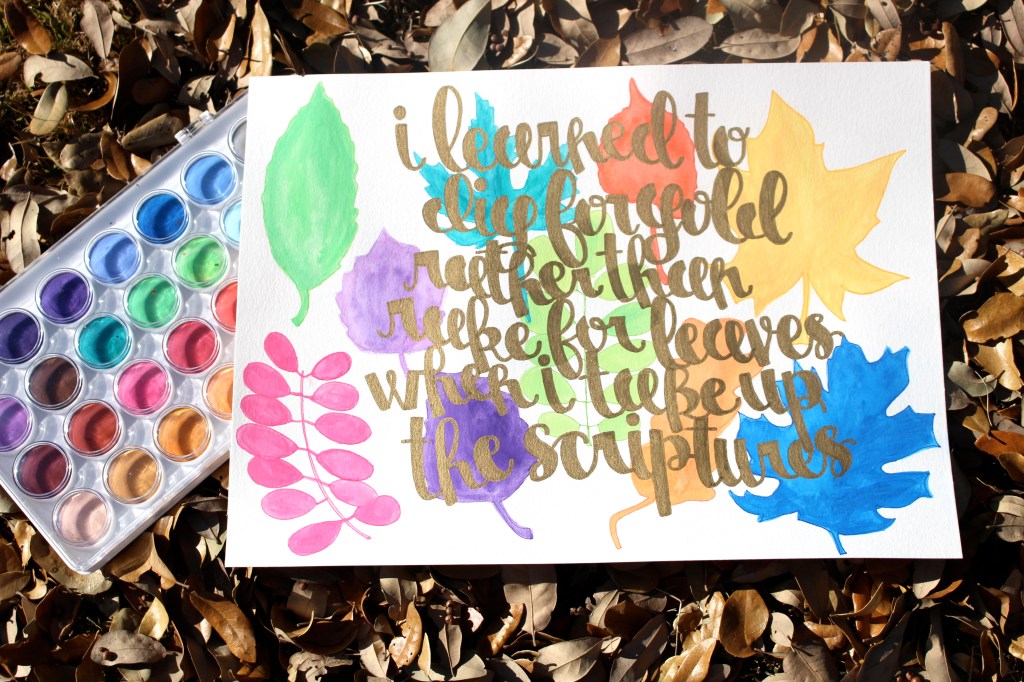 i learned to
dig for gold
rather than
rake for leaves
when i take up
the scriptures